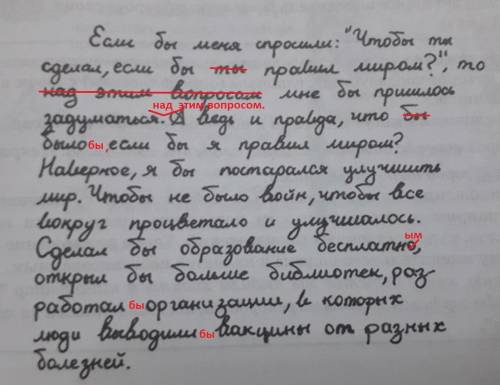 Если бы меня спросили: "Чтобы ты
сделал, если бы ты правил миром?", то
над этим вопросом мне бы пришлось
над этим вопросом.
задуматься. А ведь и правда, что бы
было бы, если бы я правил миром?
Наверное, я бы постарался улучшить
мир. Чтобы не было войн, чтобы все
вокруг процветало и улучшалось.
ым
Сделал бы образование бесплатно,
открыл бы больше библиотек, раз-
работал бы организации, в которых
люди выводили бы вакцины от разных
болезней.